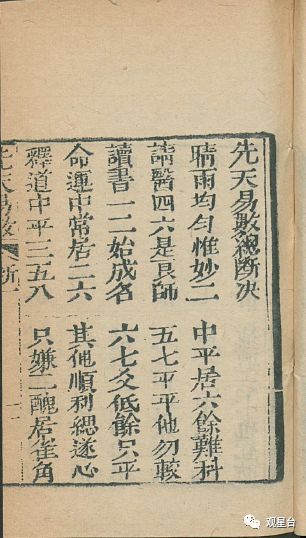 先天易數總斷决
晴雨均勻惟妙二　中平居六餘難科
請醫四六是良師　五七平平他勿較
讀書一二始成名　六七爻低餘只平
命運中常居二六　其他順利總遂心
釋道中平三五八　只嫌一醜居雀角
先天易數　斷
观星台